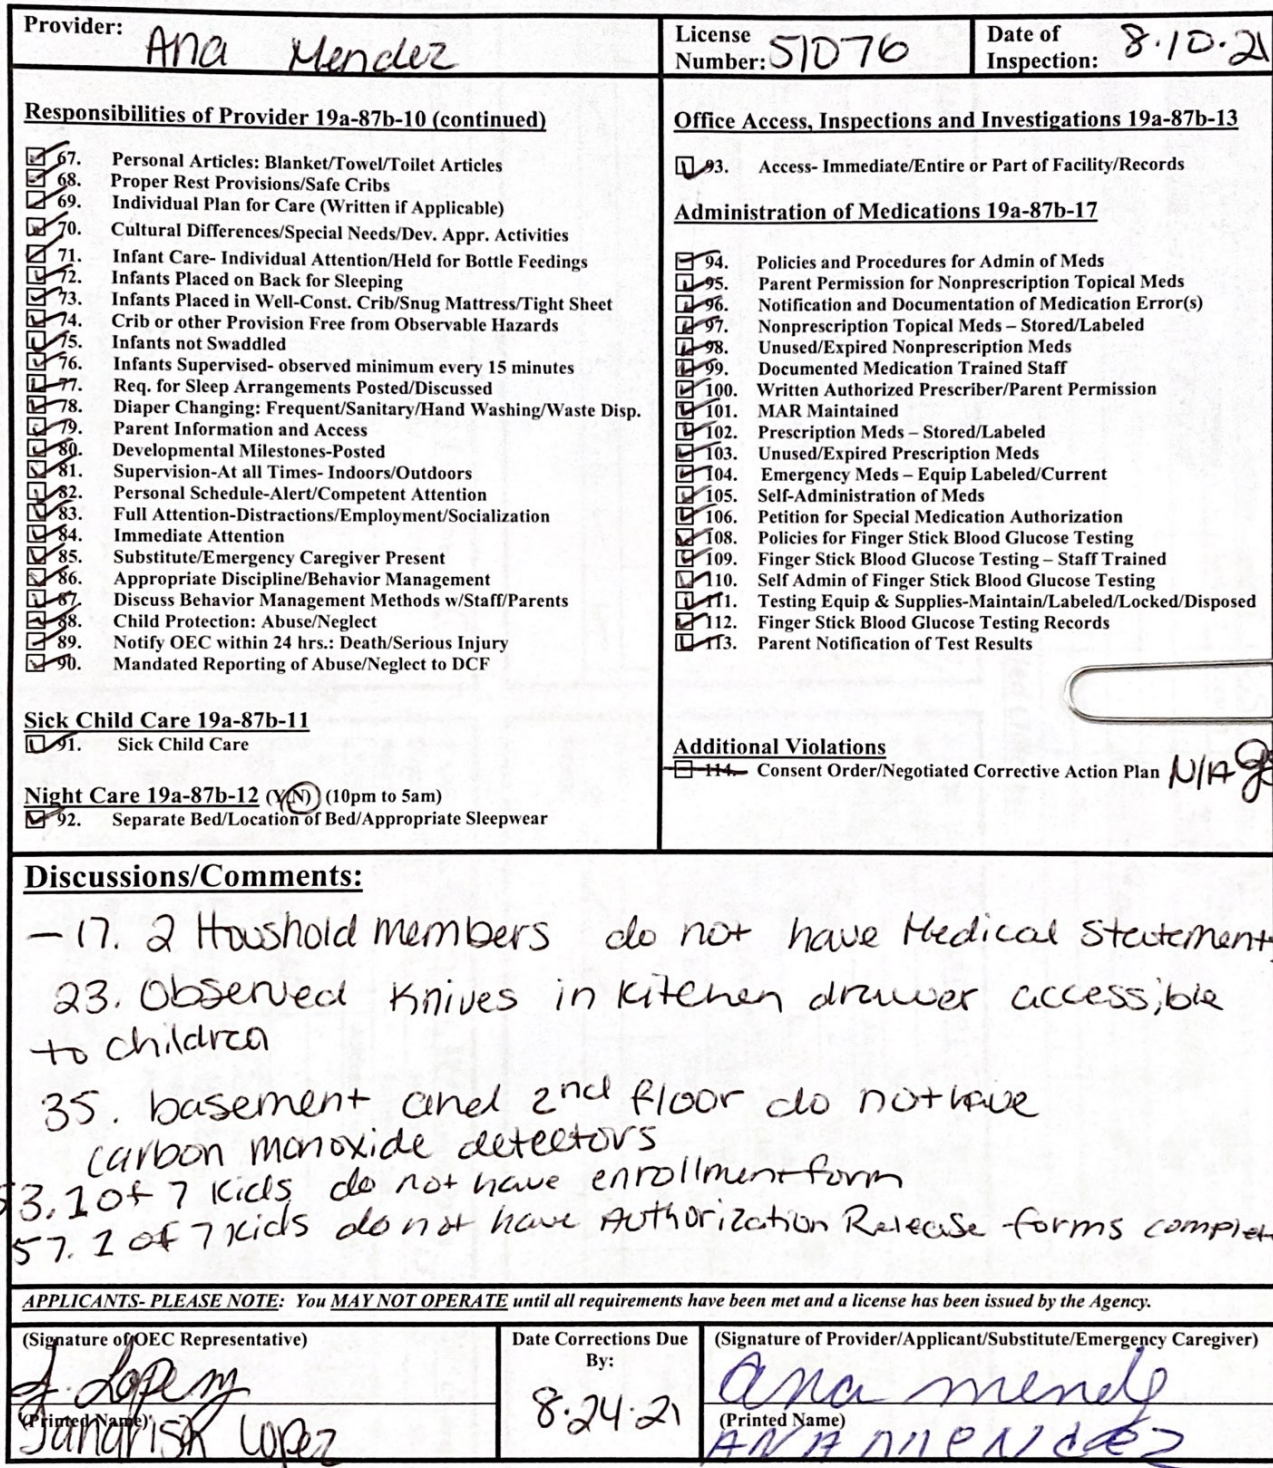 Provider: Ana Mendez
License Number: 51076
Date of Inspection: 8.10.21
Responsibilities of Provider 19a-87b-10 (continued)
67. Personal Articles: Blanket/Towel/Toilet Articles
68. Proper Rest Provisions/Safe Cribs
69. Individual Plan for Care (Written if Applicable)
70. Cultural Differences/Special Needs/Dev. Appr. Activities
71. Infant Care- Individual Attention/Held for Bottle Feedings
72. Infants Placed on Back for Sleeping
73. Infants Placed in Well-Const. Crib/Snug Mattress/Tight Sheet
74. Crib or other Provision Free from Observable Hazards
75. Infants not Swaddled
76. Infants Supervised- observed minimum every 15 minutes
77. Req. for Sleep Arrangements Posted/Discussed
78. Diaper Changing: Frequent/Sanitary/Hand Washing/Waste Disp.
79. Parent Information and Access
80. Developmental Milestones-Posted
81. Supervision-At all Times- Indoors/Outdoors
82. Personal Schedule-Alert/Competent Attention
83. Full Attention-Distractions/Employment/Socialization
84. Immediate Attention
85. Substitute/Emergency Caregiver Present
86. Appropriate Discipline/Behavior Management
87. Discuss Behavior Management Methods w/Staff/Parents
88. Child Protection: Abuse/Neglect
89. Notify OEC within 24 hrs.: Death/Serious Injury
90. Mandated Reporting of Abuse/Neglect to DCF
Sick Child Care 19a-87b-11
91. Sick Child Care
Night Care 19a-87b-12 (Y/N) (10pm to 5am)
92. Separate Bed/Location of Bed/Appropriate Sleepwear
Office Access, Inspections and Investigations 19a-87b-13
93. Access- Immediate/Entire or Part of Facility/Records
Administration of Medications 19a-87b-17
94. Policies and Procedures for Admin of Meds
95. Parent Permission for Nonprescription Topical Meds
96. Notification and Documentation of Medication Error(s)
97. Nonprescription Topical Meds – Stored/Labeled
98. Unused/Expired Nonprescription Meds
99. Documented Medication Trained Staff
100. Written Authorized Prescriber/Parent Permission
101. MAR Maintained
102. Prescription Meds – Stored/Labeled
103. Unused/Expired Prescription Meds
104. Emergency Meds – Equip Labeled/Current
105. Self-Administration of Meds
106. Petition for Special Medication Authorization
108. Policies for Finger Stick Blood Glucose Testing
109. Finger Stick Blood Glucose Testing – Staff Trained
110. Self Admin of Finger Stick Blood Glucose Testing
111. Testing Equip & Supplies-Maintain/Labeled/Locked/Disposed
112. Finger Stick Blood Glucose Testing Records
113. Parent Notification of Test Results
Additional Violations
114. Consent Order/Negotiated Corrective Action Plan N/A
Discussions/Comments:
— 17. 2 Houshold members do not have Medical Statement
23. Observed Knives in Kitchen drawer accessible
to children
35. basement and 2nd floor do not have
carbon monoxide detectors
53. 1 of 7 kids do not have enrollment form
57. 1 of 7 kids do not have Authorization Release forms complet
APPLICANTS- PLEASE NOTE: You MAY NOT OPERATE until all requirements have been met and a license has been issued by the Agency.
(Signature of OEC Representative)
J. Lopez
(Printed Name)
Lopez
Date Corrections Due
By:
8.24.21
(Signature of Provider/Applicant/Substitute/Emergency Caregiver)
Ana
(Printed Name)